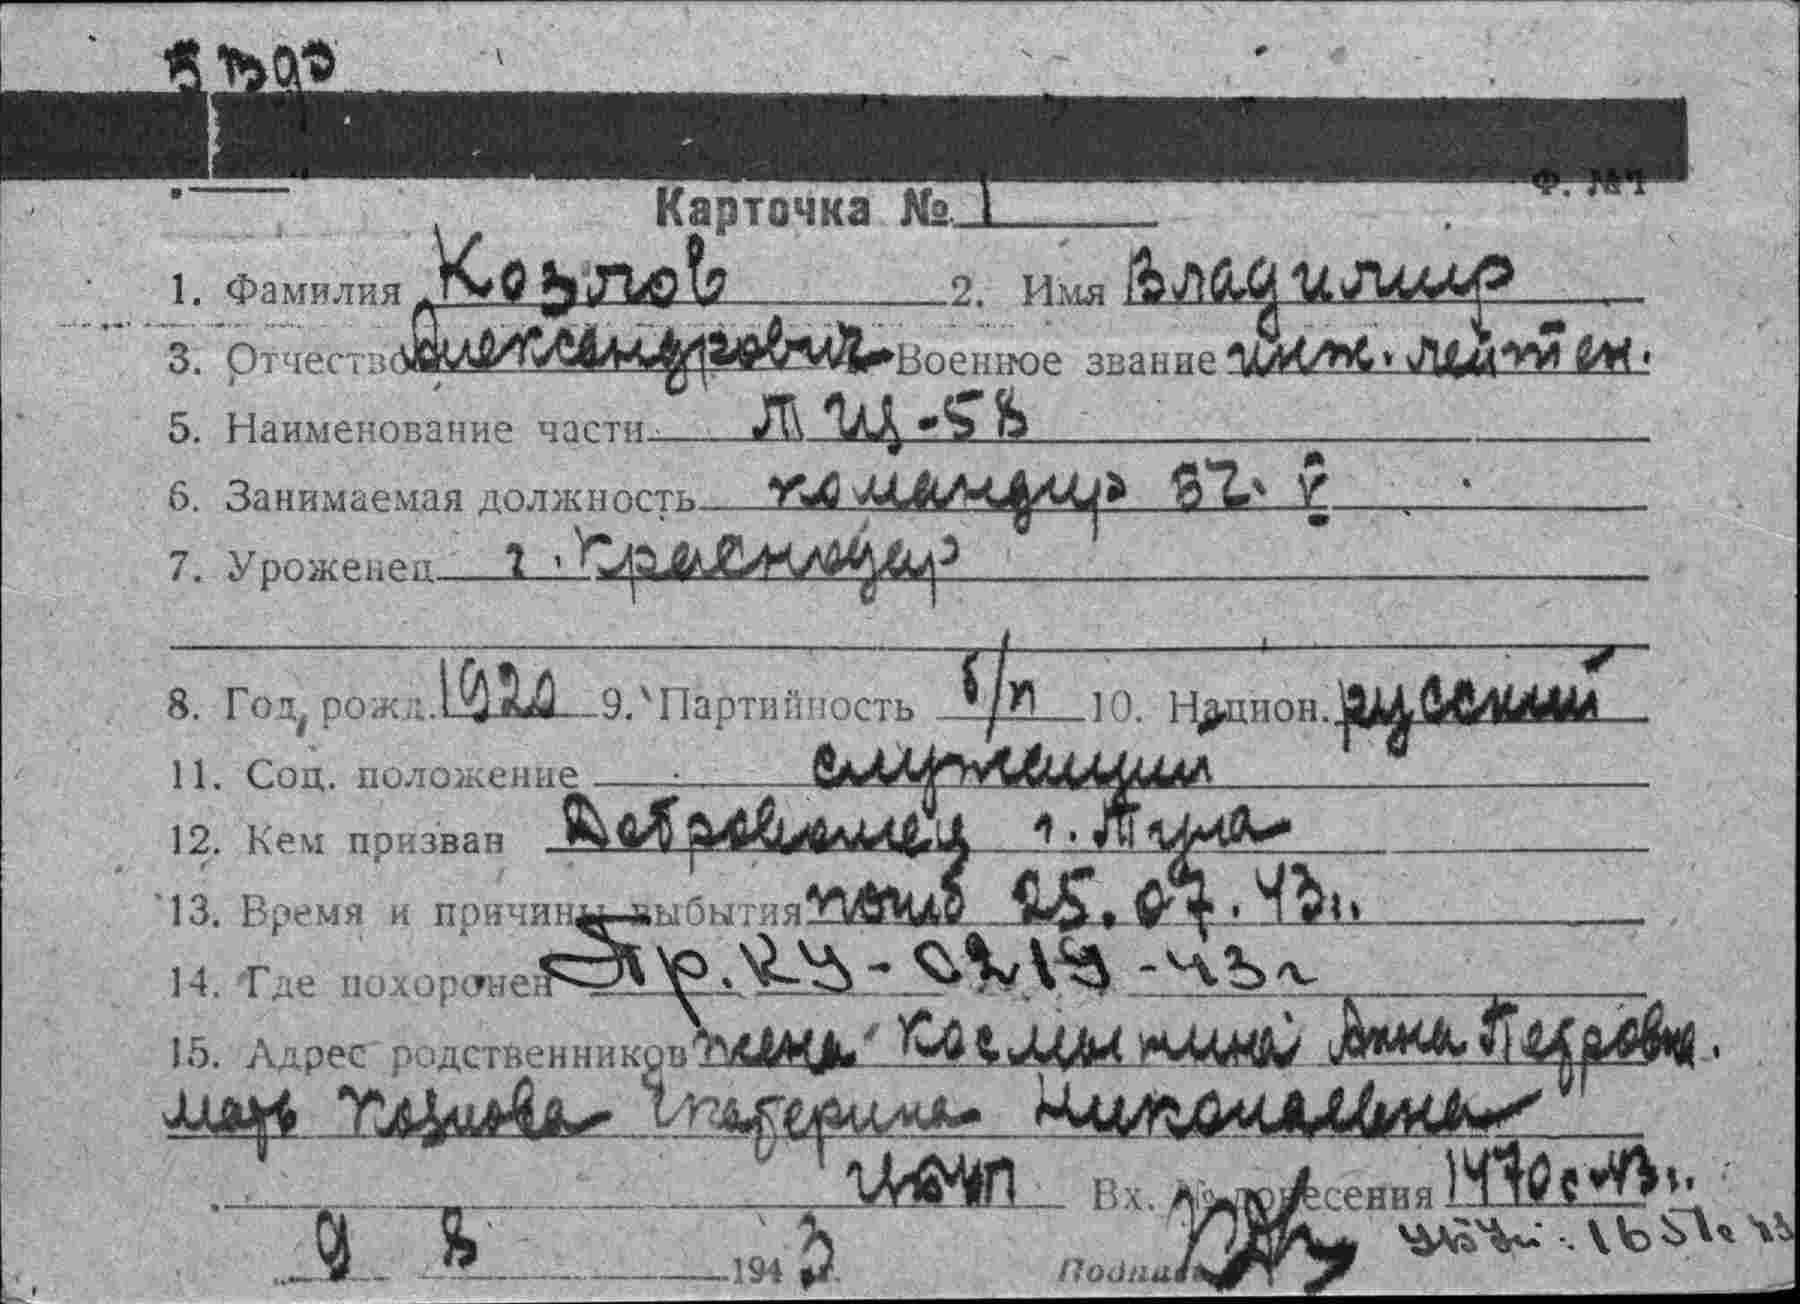 Ф. №1
Карточка № 1
1. Фамилия Козлов 2. Имя Владимир
3. Отчество Александрович Военное звание инж. лейтен.
5. Наименование части ТЩ-58
6. Занимаемая должность командир БЧ. V
7. Уроженец г. Краснодар
8. Год рожд. 1920 9. Партийность б/п 10. Национ. русский
11. Соц. положение служащий
12. Кем призван Добровольцем г. Тула
13. Время и причины выбытия погиб 25.07.43г.
14. Где похоронен Пр. КУ-0219-43г
15. Адрес родственников жена Космынина Анна Петровна.
мать Козлова Екатерина Николаевна
Вх. № донесения 1470с-43г.
9 8 1943
Подпись 1651с 43